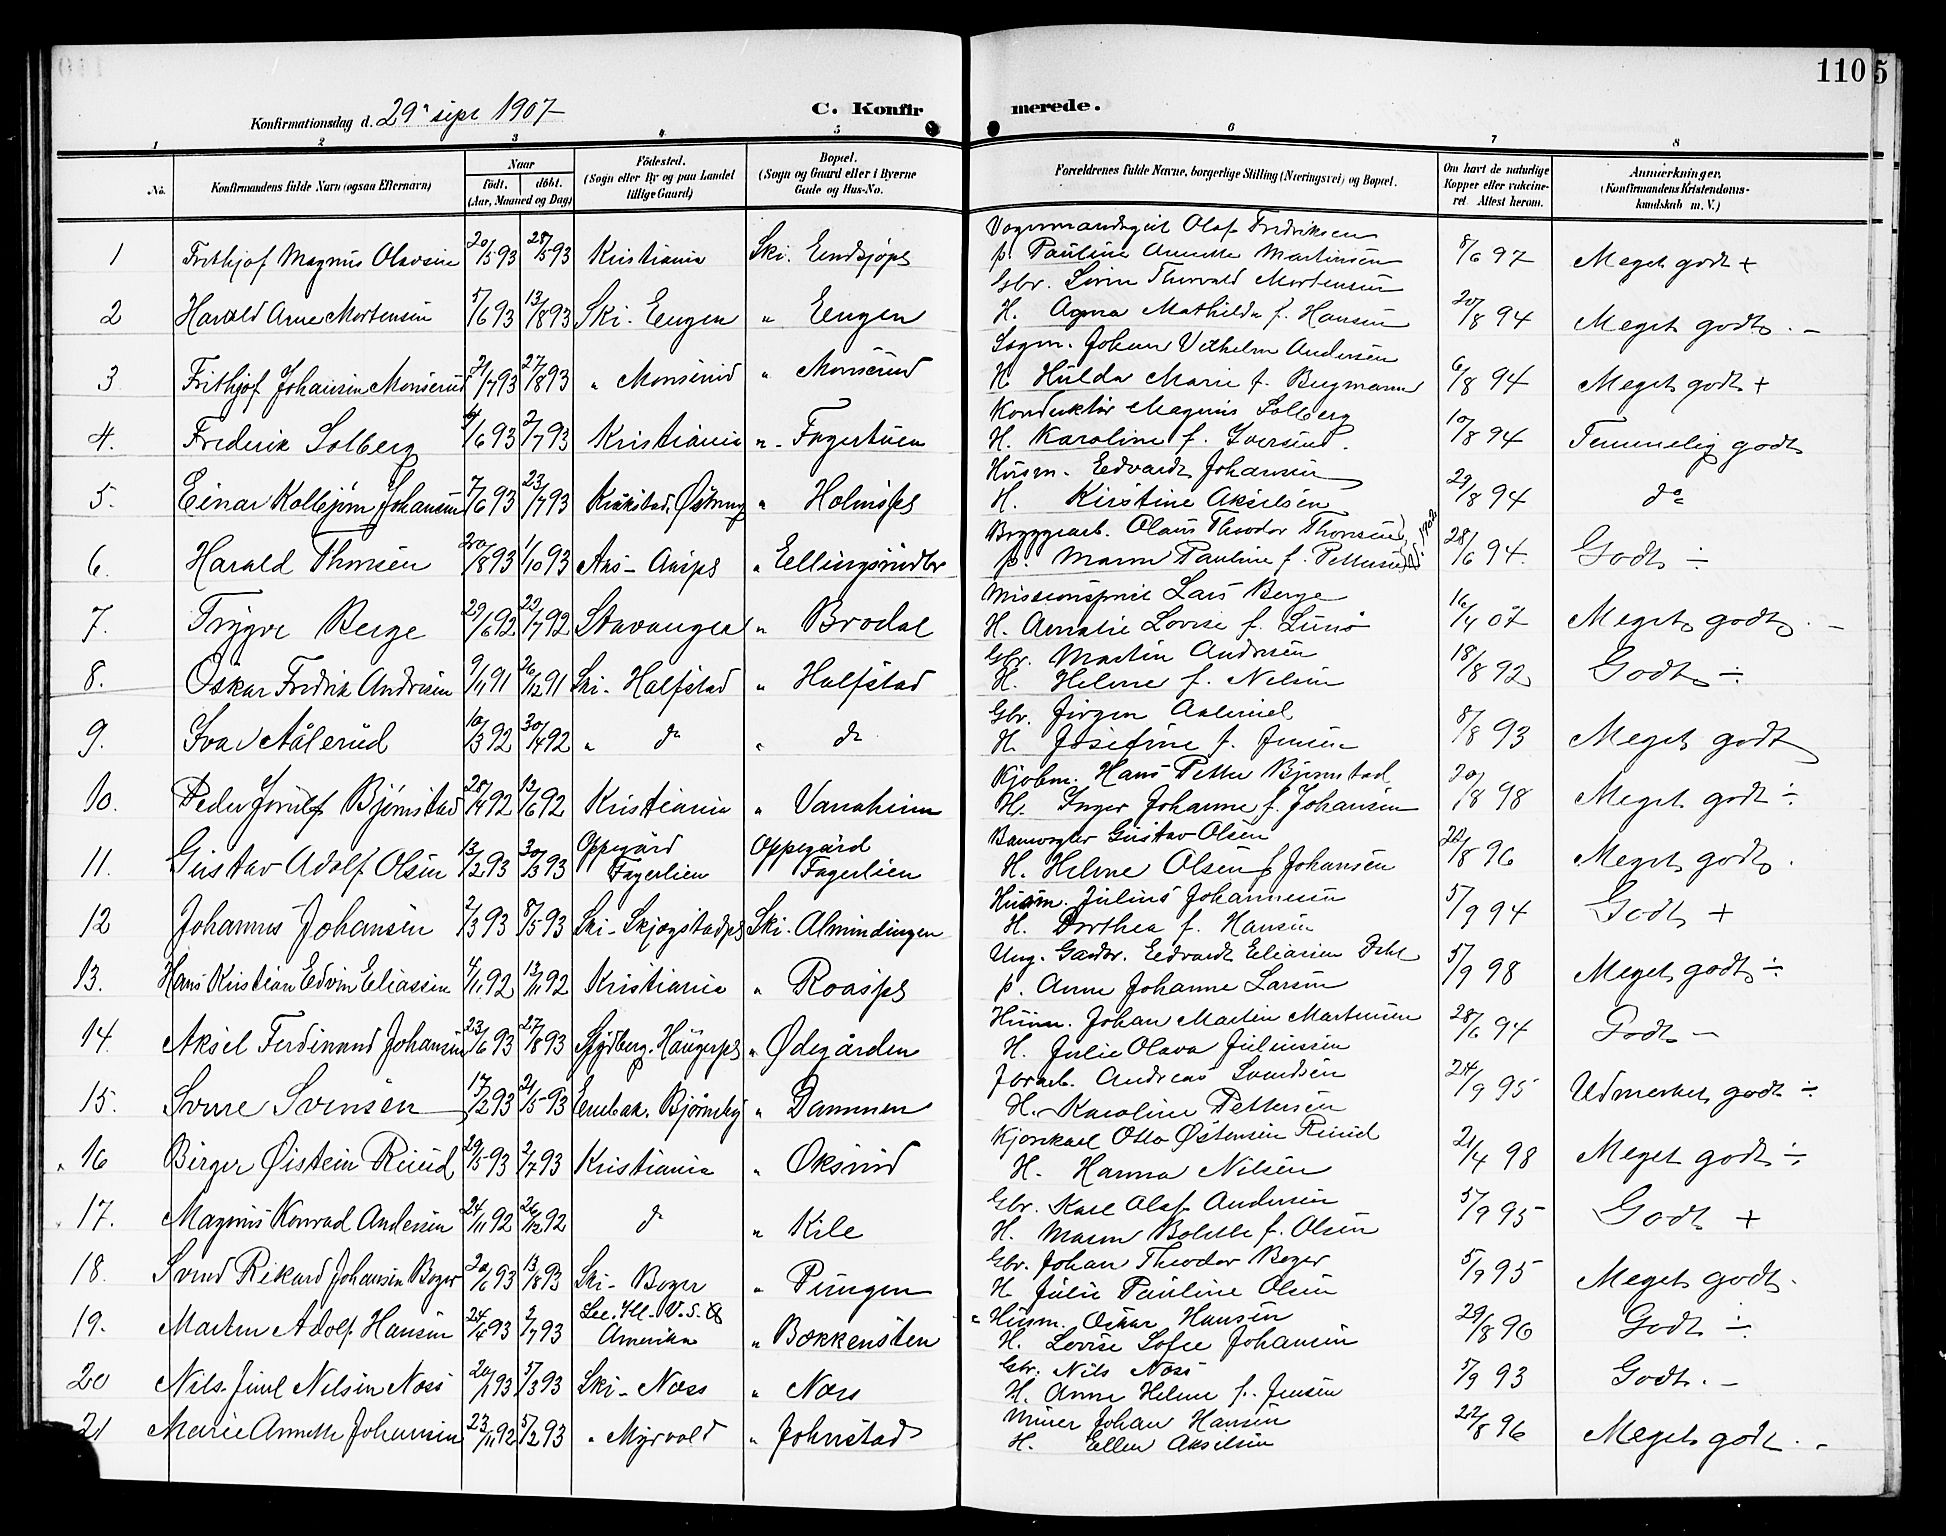 110 5
Konfirmationsdag d. 29' sept 1907
C. Konfir merede.
1 2 3 4 5 6 7 8
No. Konfirmandens fulde Navn (ogsaa Efternavn) Naar født. døbt. (Aar, Maaned og Dag) Fødested. (Sogn eller By og paa Landet tillige Gaard) Bopæl. (Sogn og Gaard eller i Byerne Gade og Hus-No. Forældrenes fulde Navne, borgerlige Stilling (Næringsvei) og Bopæl. Om havt de naturlige Kopper eller vakcineret. Attest herom. Anmærkninger. (Konfirmandens Kristendomskundskab m. V.)
1 Frithjof Magnus Olavsen 20/5 93 28/5 93 Kristiania Ski. Endsjøpl Vognmandsgut Olaf Fredriksen
p. Pauline Annette Martinsen 8/6 97 Meget godt +
2 Harald Arne Mortensen 5/6 93 13/8 93 Ski - Engen " Eengen Gbr. Sørn Thorvald Mortensen
H. Agna Mathilde f. Hansen 20/8 94 Meget godt. -
3 Frithjof Johansen Monserud 21/7 93 27/8 93 " Monserud " Monserud Sagm. Johan Vilhelm Andersen
H. Hulda Marie f. Bergmann 6/8 94 Meget godt +
4. Frederik Solberg 4/6 93 2/7 93 Kristiania " - Fagertuen Konduktør Magnus Solberg
H. Karoline f. Iversen. 10/8 94 Temmelig godt
5. Einar Kolbjørn Johansen 7/6 93 23/7 93 Kråkstad, " Holmspl Husm. Edvardt Johansen
H. Kirstine Akselsen 29/8 94 do
6. Harald Thorsen 20/8 93 1/10 93 Aas - " Ellingsrudbr Bryggearb. Olaus Theodor Thoresen
p. Maren Pauline f. Pettersen 28/6 94. Godt ÷
7. Trygve Berge 29/6 92 23/7 92 Stavanger " Brodal Missionsprest Lars Berge
H. Amalie Lovise f. Lunø 16/4 07 Meget godt. -
8. Oskar Fredrik Andresen 9/11 91 26/12 91 Ski - Halfstad " Halfstad Gbr. Martin Andresen
H. Helene f. Nilsen 18/8 92 Godt ÷
9. Ivar Ålerud 10/3 92 30/4 92 " do " do Gbr. Jørgen Aalerud
H. Josefine f. Jensen 8/8 93 Meget godt
10. Peder Jorulf Bjørnstad 20/4 92 12/6 92 Kristiania " Vanaheim Kjøbm. Hans Petter Bjørnstad
H. Inger Johanne f. Johansen 30/8 98 Meget godt ÷
11. Gustav Adolf Olsen 13/2 93 30/3 93 Oppegård Fagerlien Oppegård Fagerlien Banevogter Gustav Olsen
H. Helene Olsen f Johansen 22/8 96 Meget godt.
12 Johannes Johansen 2/3 93 8/5 93 Ski - Skjøgstadpl Ski - Almindingen Husm. Julius Johannesen
H. Dorthea f. Hansen 5/9 94 Godt +
13. Hans Kristian Edvin Eliassen 4/11 92 13/11 92 Kristiania " Roaspl Ung. Gardbr. Edvardt Eliasen Dahl
p. Anne Johanne Larsen 5/9 98 Meget godt ÷
14. Aksel Ferdinand Johansen 23/6 93 27/8 93 Spydberg. Haugerpl " Ødegården Husm. Johan Martin Martinsen
H. Julie Olava Juliussen 28/6 94 Godt -
15. Sverre Svensen 17/2 93 21/5 93 Enebak. Bjørneby " Dammen Jbrarb. Andreas Svendsen
H. Karoline Pettersen 24/9 95 Udmerket godt ÷
16 Birger Øistein Ruud 29/5 93 2/7 93 Kristiania " Oksrud Kjørekarl Otto Østensen Ruud
H. Hanna Nilsen 21/4 98 Meget godt ÷
17. Magnus Konrad Andersen 24/11 92 26/12 92 do " Kile Gbr. Karl Olaf Andersen
H. Maren Bolette f. Olsen 5/9 95 Godt +
18. Svend Rikard Johansen Boger 20/6 93 13/8 93 Ski - Boger " Pungen Gbr. Johan Theodor Boger
H Julie Pauline Olsen 5/9 95 Meget godt.
19. Martin Adolf Hansen 24/4 93 2/7 93 Lee. Ill. U. S. A Amerika " Bøkkensten Husm. Oskar Hansen
H. Lovise Sofie Johansen 29/8 96 Godt ÷
20 Nils Juul Nilsen Næss 20/1 93 5/3 93 Ski - Næss " Næss Gbr. Nils Næss
H. Anne Helene f. Jensen 5/9 93 Godt. -
21 Marie Annette Johansen 23/11 92 5/2 93 " Myrvold " Johnstad Murer Johan Hansen
H. Ellen Akselsen 22/8 96 Meget godt. -